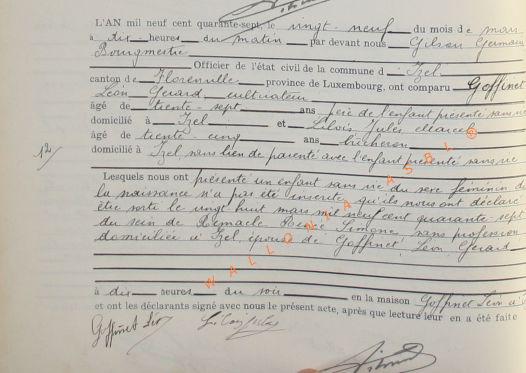 L'AN mil neuf cent quarante-sept, le vingt-neuf du mois de mars
à dix heures du matin par devant nous Gilson Germain
Bourgmestre
Officier de l'état civil de la commune d'Izel
canton de Florenville province de Luxembourg, ont comparu Goffinet
Léon Gérard cultivateur
âgé de trente-sept ans père de l'enfant présenté sans vie
domicilié à Izel et Jules
âgé de trente-cinq ans bûcheron
domicilié à Izel, sans lien de parenté avec l'enfant présenté sans vie
12/
Lesquels nous ont présenté un enfant sans vie du sexe féminin d
la naissance n'a pas été inscrite, qu'ils nous ont déclaré
être sorti le vingt huit mars mil neuf cent quarante sept
du sein de Remacle Simone, sans profession
domiciliée à Izel, épouse de Goffinet Léon Gérard
à dix heures du soir en la maison Goffinet Léon à I
et ont les déclarants signé avec nous le présent acte, après que lecture leur en a été faite
Goffinet Léon
WALLONIA ASBL ©